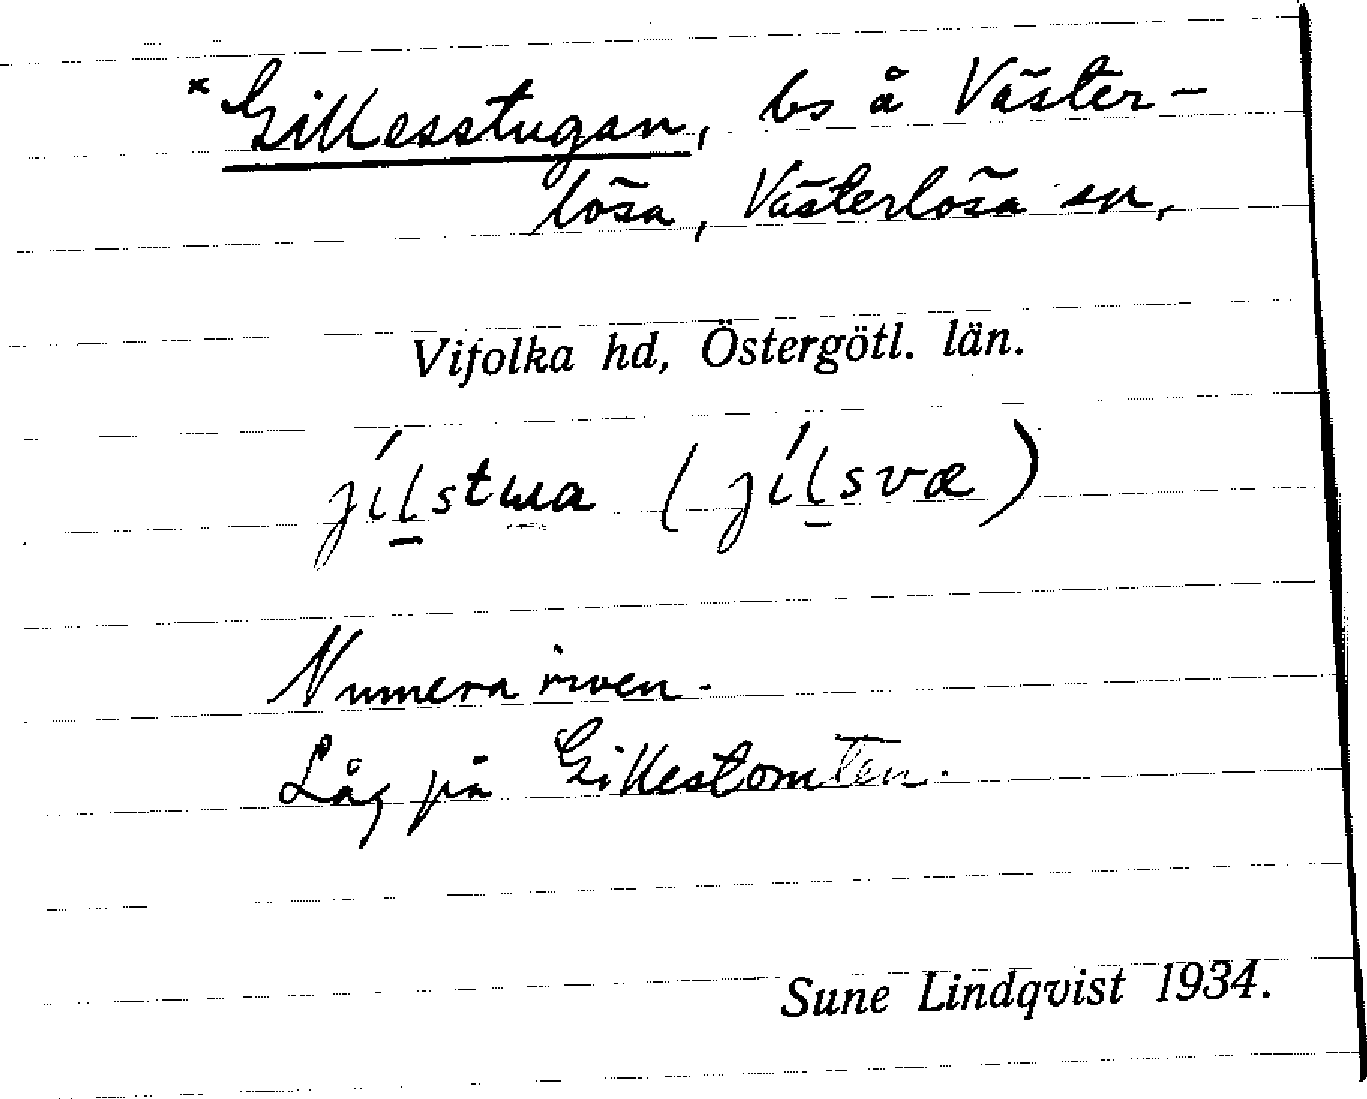 *Gillesstugan, bs å Väster-
lösa, Västerlösa sn,
Vifolka hd, Östergötl. län.
jíl̲stɯa (jíl̲svæ)
Numera riven.
Låg på Gillestomten.
Sune Lindqvist 1934.